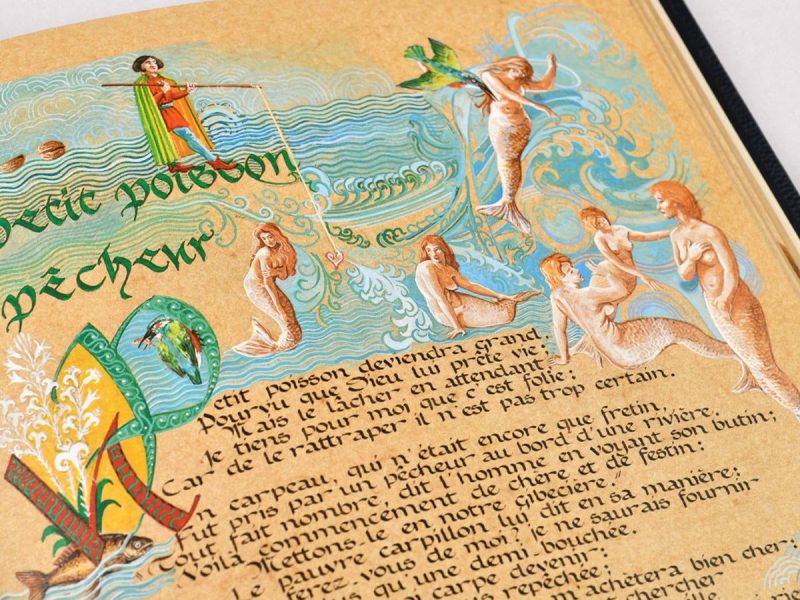 petit poisson
pêcheur
Petit poisson deviendra grand,
Pourvu que Dieu lui prête vie;
Mais le lâcher en attendant,
Je tiens pour moi que c'est folie;
Car de le rattraper il n'est pas trop certain.
Un carpeau, qui n'était encore que fretin,
Fut pris par un pêcheur au bord d'une rivière.
Tout fait nombre, dit l'homme en voyant son butin;
Voilà commencement de chère et de festin:
Mettons le en notre gibecière."
Le pauvre carpillon lui dit en sa manière:
ferez-vous de moi? je ne saurais fournir
qu'une demi-bouchée.
moi carpe devenir:
repêchée;
m'achètera bien cher;
chercher